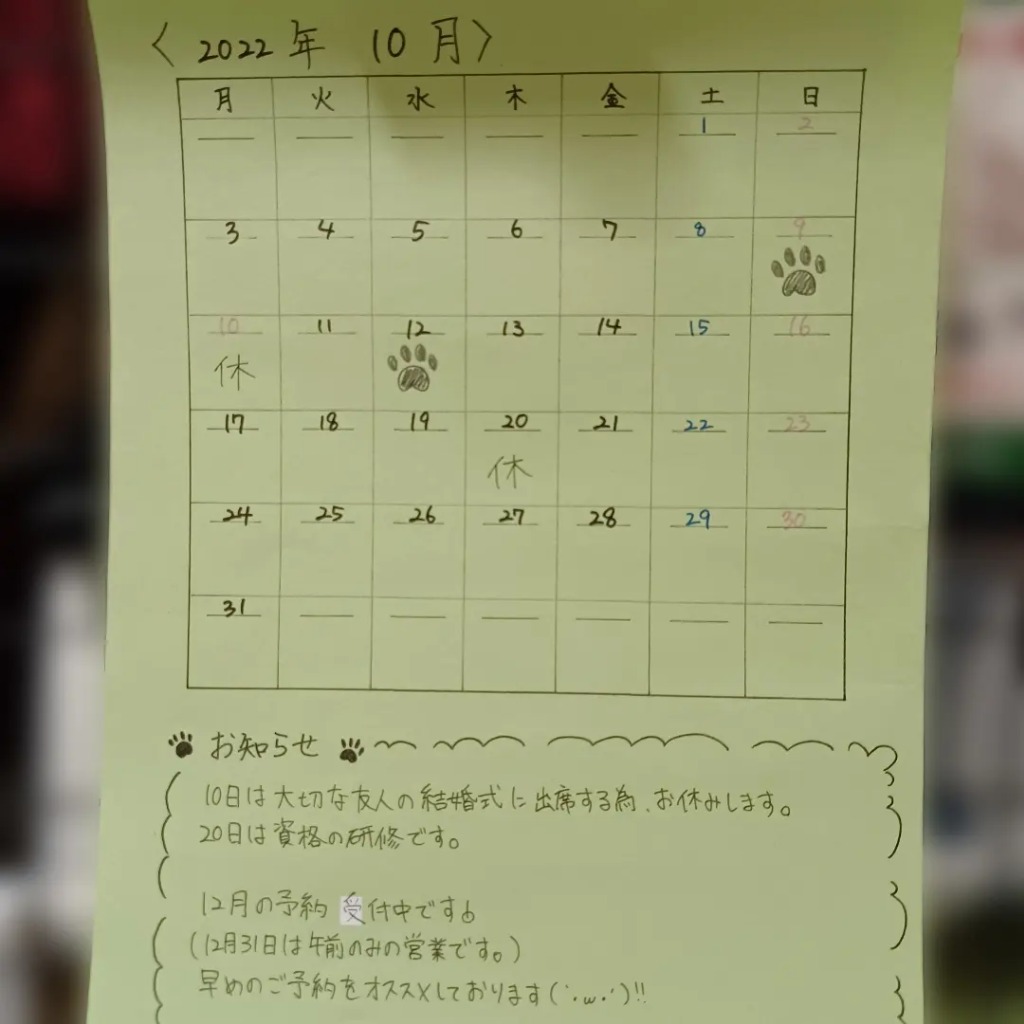 〈 2022年 10月〉
月 火 水 木 金 土 日
1 2
3 4 5 6 7 8 9
10 11 12 13 14 15 16
休
17 18 19 20 21 22 23
休
24 25 26 27 28 29 30
31
お知らせ
10日は大切な友人の結婚式に出席する為、お休みします。
20日は資格の研修です。
12月の予約 受付中です♪
(12月31日は午前のみの営業です。)
早めのご予約をオススメしております(˙.ω.˙)!!